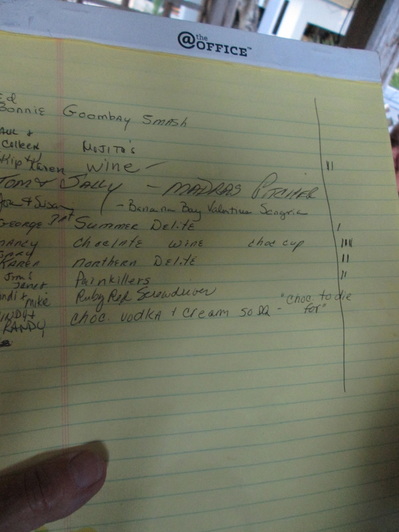 @the OFFICE™
Bonnie Goombay Smash
Colleen Mojito's
Kip Karen wine
Tom & Sally - Madras Pitcher
& Susan - Banana Bay Valentine Sangria
George Summer Delite
Nancy choclate wine choc cup
Karen northern Delite
Jim & Janet Painkillers
Mike Ruby Red Screwdriver "choc to die
Randy choc vodka + cream soda - for"